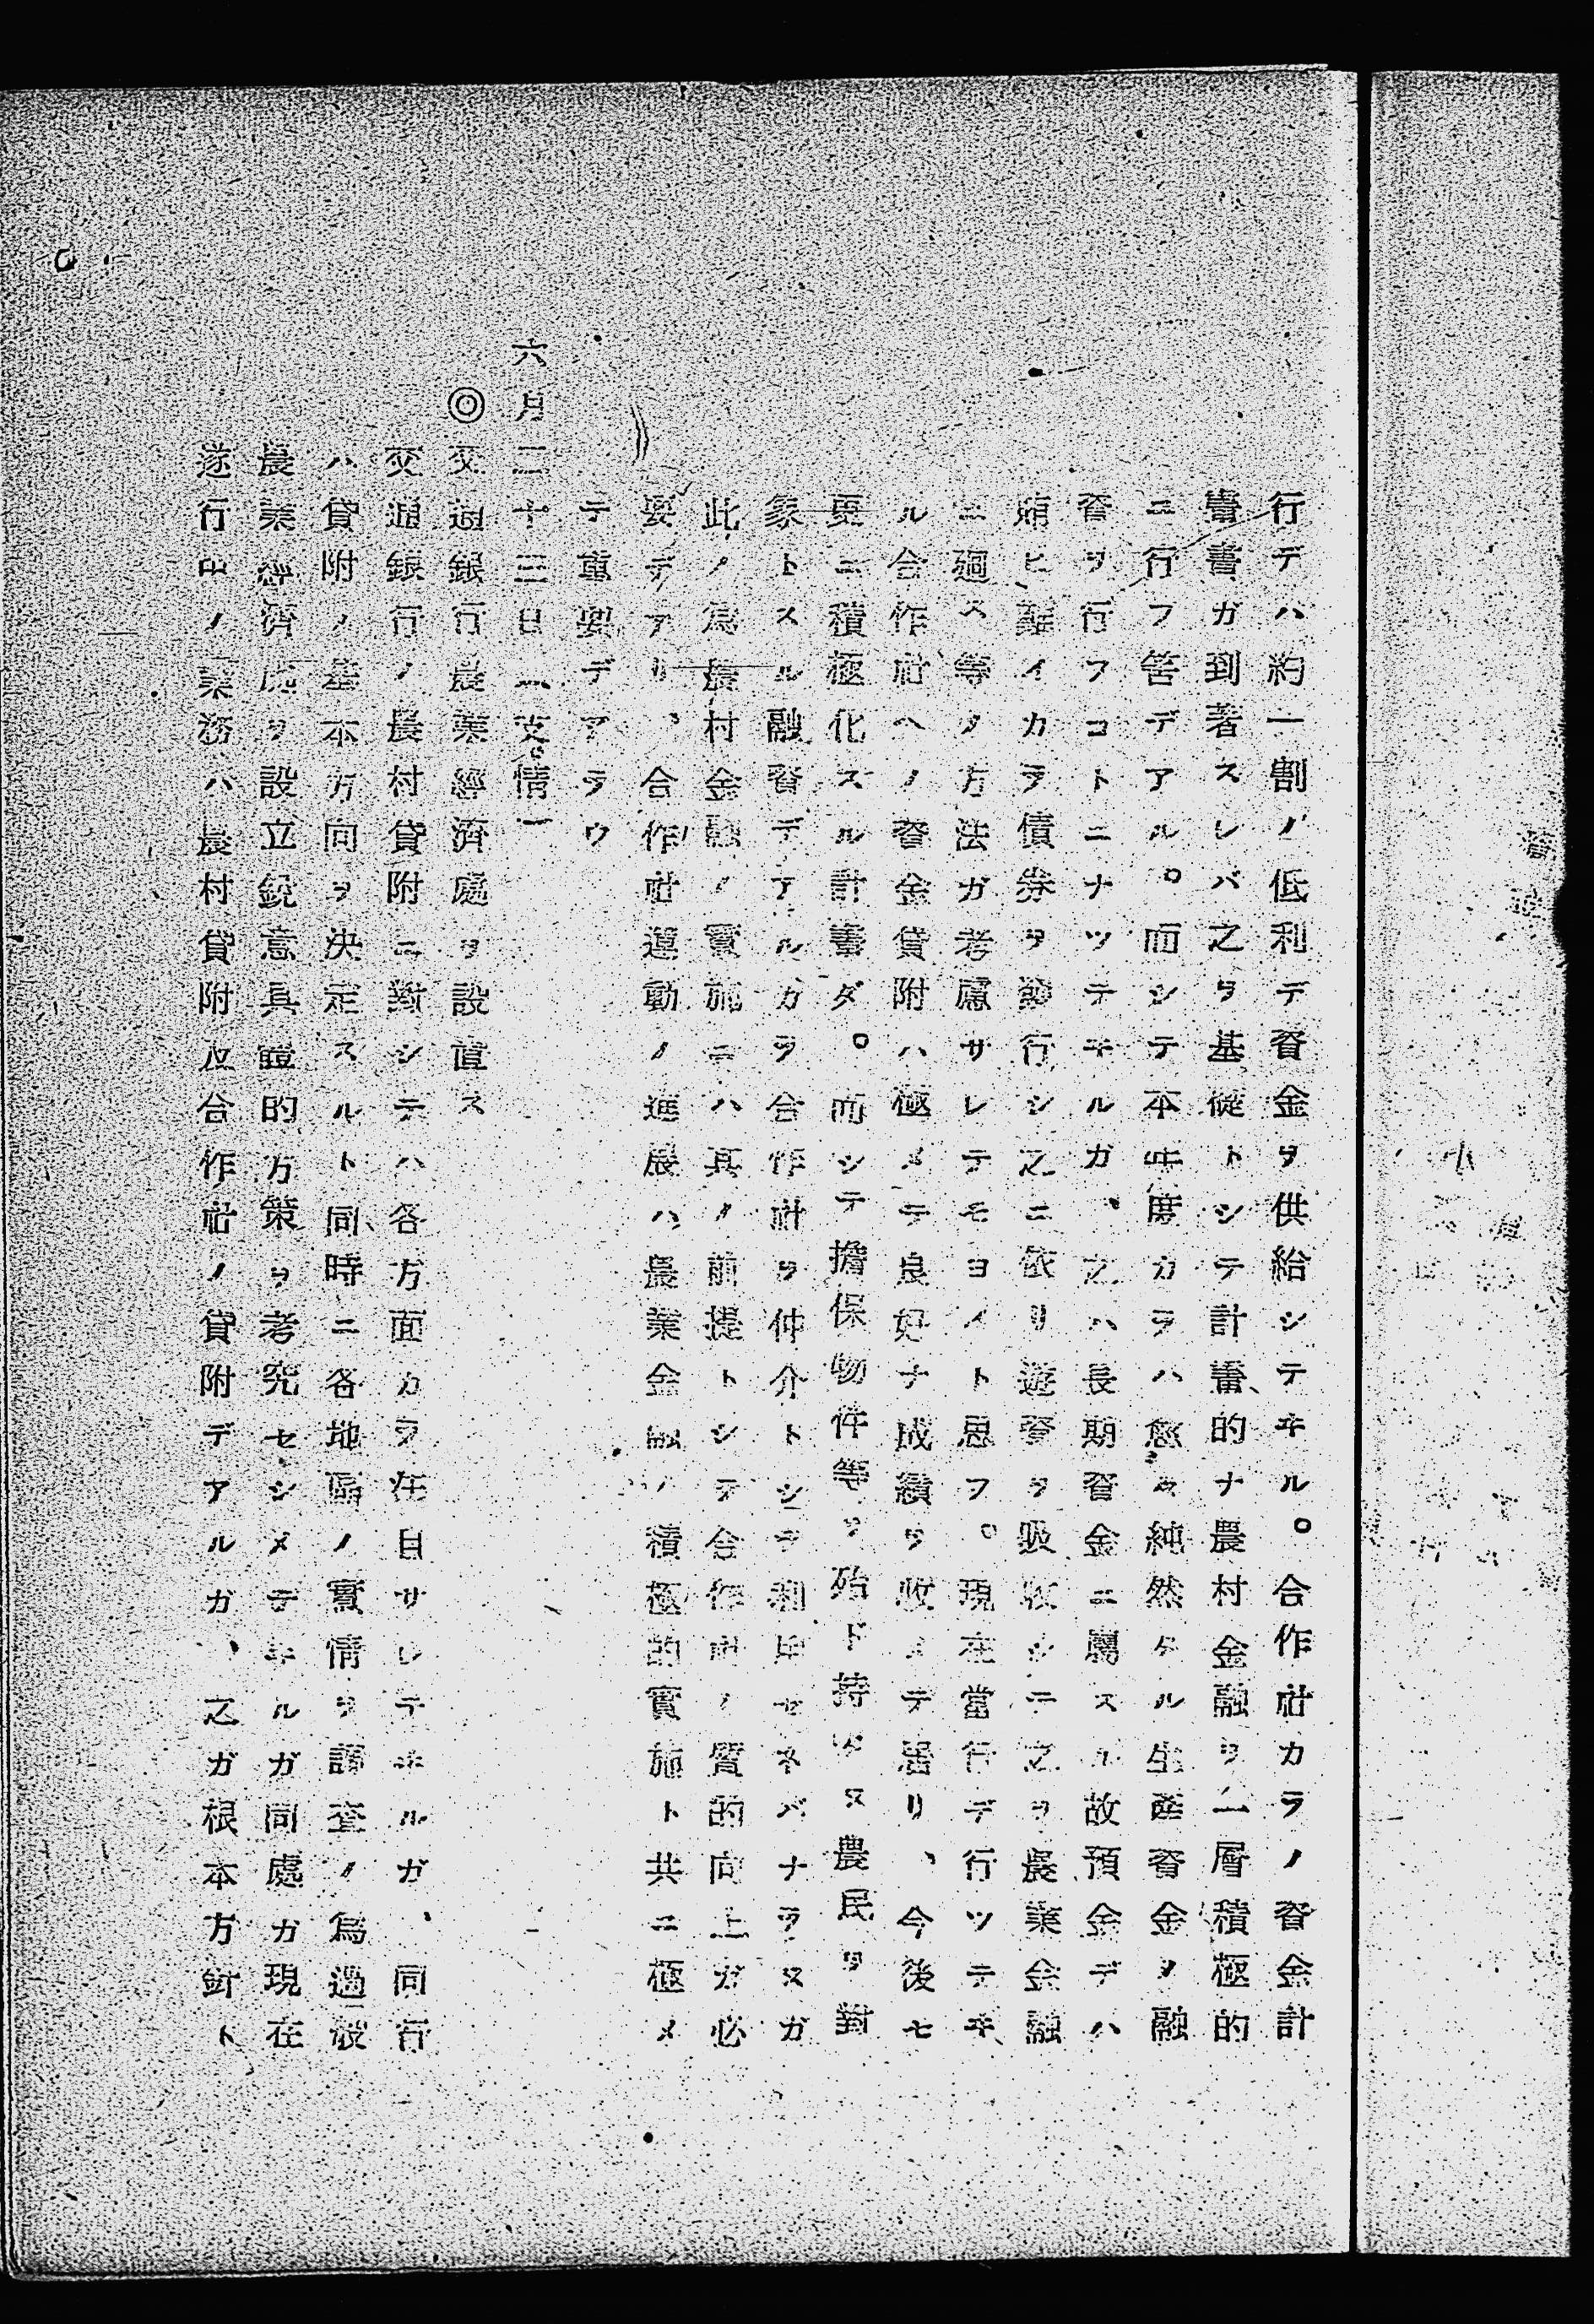 行デハ約一割ノ低利デ資金ヲ供給シテヰル。合作社カラノ資金計
畫書ガ到著スレバ之ヲ基礎トシテ計畫的ナ農村金融ヲ一層積極的
ニ行フ筈デアル。而シテ本年度カラハ愈々純然タル生產資金ノ融
資ヲ行フコトニナツテヰルガ、之ハ長期資金ニ屬スル故預金デハ
賄ヒ難イカラ債券ヲ發行シ之ニ依リ遊資ヲ吸收シテ之ヲ農業金融
ニ廻ス等ノ方法ガ考慮サレテモヨイト思フ。現在當行デ行ツテヰ
ル合作社ヘノ資金貸附ハ極メテ良好ナ成績ヲ收メテ居リ、今後モ
更ニ積極化スル計畫ダ。而シテ擔保物件等ヲ殆ド持タヌ農民ヲ對
象トスル融資デアルカラ合作社ヲ仲介トシテ利用セネバナラヌガ
此ノ爲農村金融ノ實施ニハ其ノ前提トシテ合作社ノ質的向上ガ必
要デアリ、合作社運動ノ進展ハ農業金融ノ積極的實施ト共ニ極メ
テ重要デアラウ
六月二十三日(支情)
◎交通銀行農業經濟處ヲ設置ス
交通銀行ノ農村貸附ニ對シテハ各方面カラ注目サレテヰルガ、同行
ハ貸附ノ基本方向ヲ決定スルト同時ニ各地區ノ實情ヲ調査ノ爲過般
農業經濟處ヲ設立銳意具體的方策ヲ考究セシメテヰルガ同處ガ現在
遂行中ノ業務ハ農村貸附及合作社ノ貸附デアルガ、之ガ根本方針ト